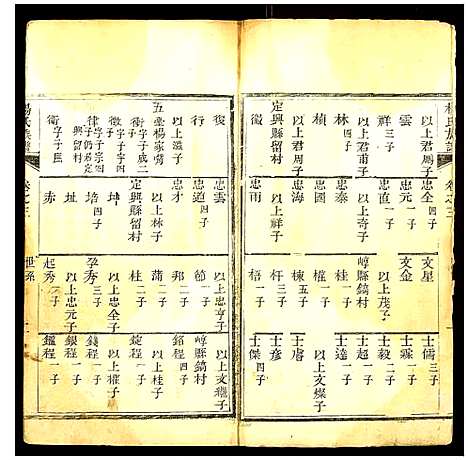 楊氏族譜
卷之三
以上君周子
雲
祥 三子
以上君甫子
林 四子
楨
定興縣留村
徵
忠全 四子
忠元 一子
忠貞 一子
以上奇子
忠泰
忠國
忠海
以上祥子
忠雨
文星
文金
以上茂子
崞縣鎬村
桂 一子
權 一子
棟 五子
杆 三子
梧 一子
士儒 三子
士霖 一子
士毅 二子
士超 一子
士達 一子
以上文燦子
士膚
士 一子
士傑 四子
復
行
以上湖子
五臺楊家灣
衛字子成二
徵字子
律字子宗四
興留村
衛字子臣
忠雲
忠道 四子
忠才
以上林子
定興縣留村
坤
培 四子
址
赤
以上忠亨子
節 一子
邦 二子
蒲 二子
桂 一子
以上忠全子
孕秀 三子
以上忠元子
起秀 三子
以上文繼子
崞縣鎬村
銘程 四子
以上桂子
錠程 一子
以上權子
錢程 一子
銀程 一子
鑑程 一子
楊氏族譜
卷之三
世系